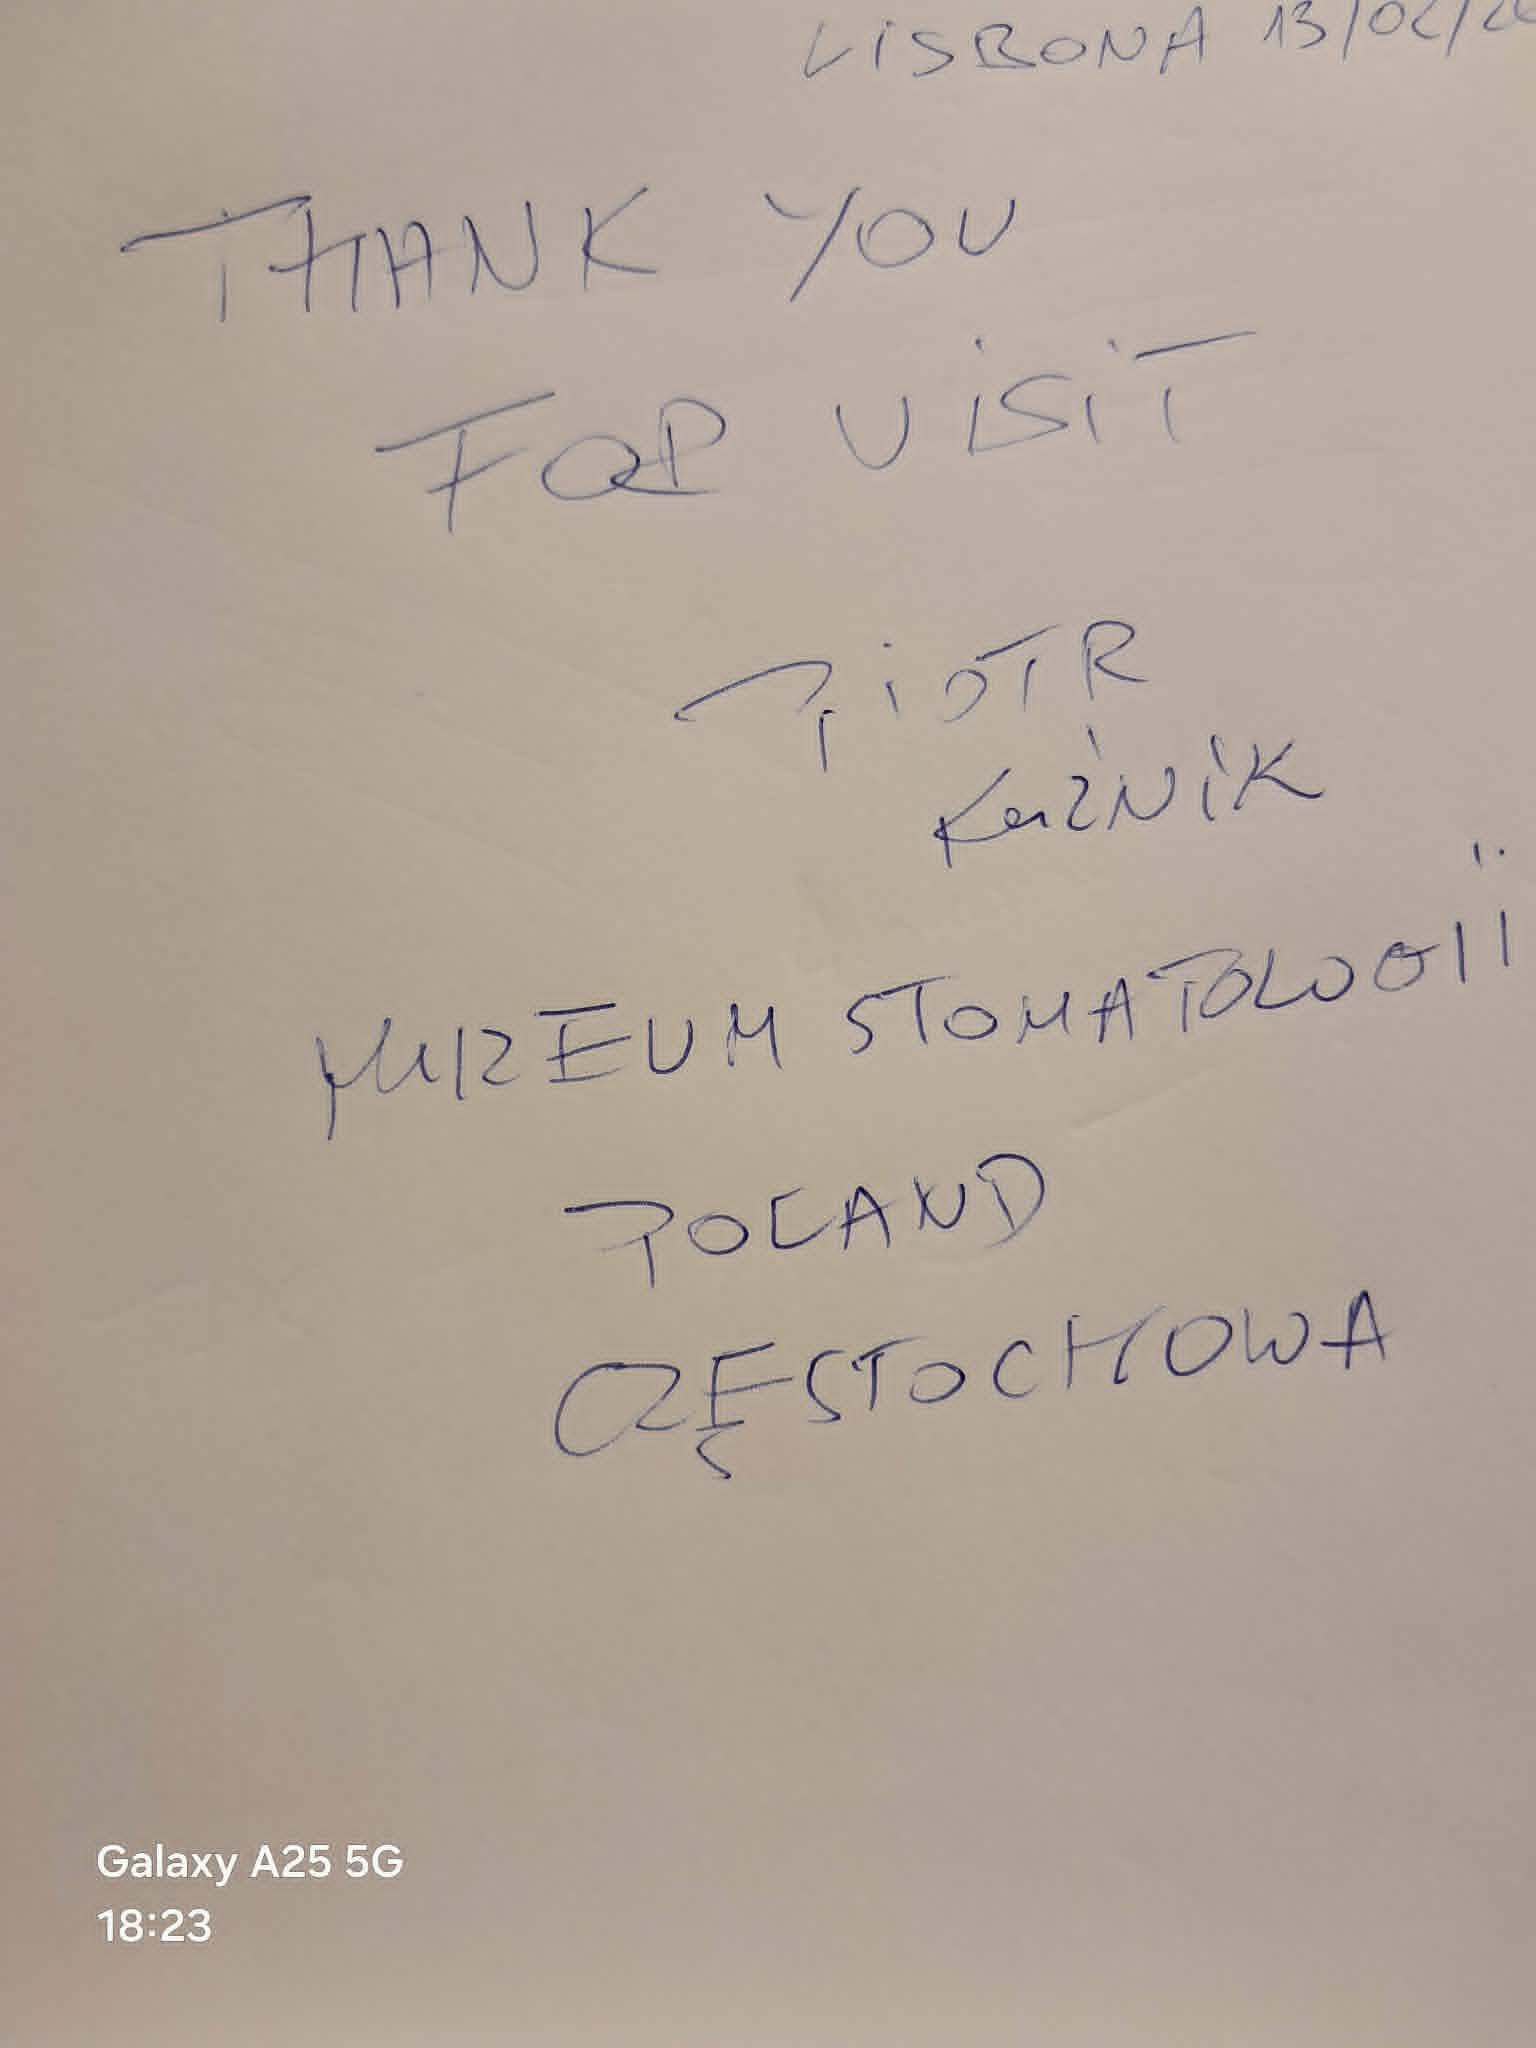 LISBONA 13/02/
THANK YOU
FOR VISIT
PIOTR
KuźNiK
MUZEUM STOMATOLOGII
POLAND
CZĘSTOCHOWA
Galaxy A25 5G
18:23